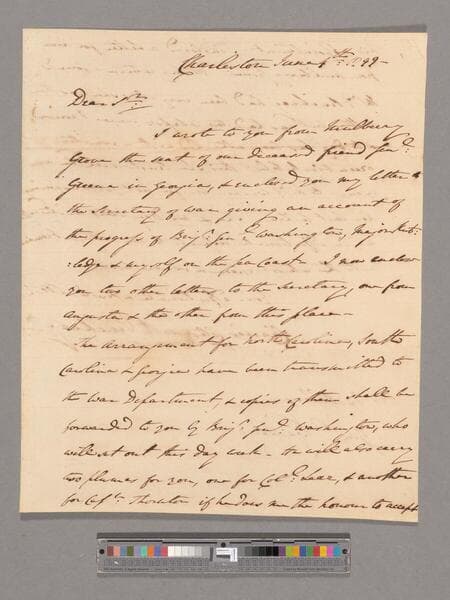 Charleston June 4th. 1799-
Dear Sir,
I wrote to you from Mulberry
Grove the seat of our deceased friend Genl.
Greene in Georgia, & enclosed you my letter to
the Secretary of war giving an account of
the progress of Brigr. Genl. Washington, Major Rut:
:ledge & myself on the Sea Coast- I now enclose
you two other letters to the Secretary, one from
Augusta & the other from this place-
The arrangement for North Carolina, South
Carolina & Georgia have been transmitted to
the War Department, & copies of them shall be
forwarded to you by Brigr. Genl. Washington, who
will set out this day week- He will also carry
two plumes for you, one for Col: Lear, & another
for Capt. Thornton if he does me the honour to accept